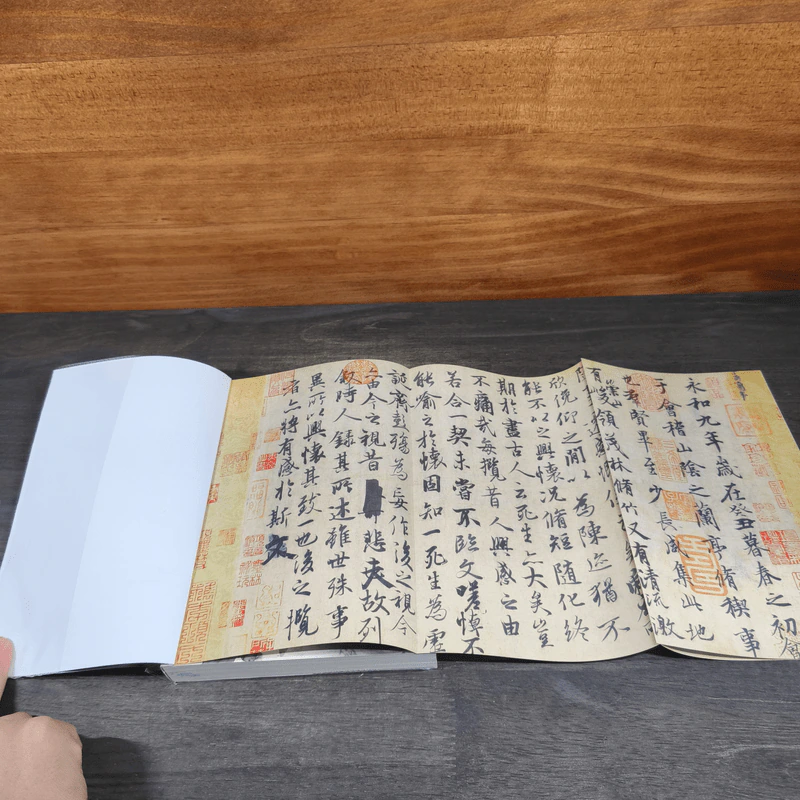 永和九年歲在癸丑暮春之初會
于會稽山陰之蘭亭脩稧事
也羣賢畢至少長咸集此地
有崇山峻領茂林脩竹又有清流激
欣俛仰之間以為陳迹猶不
能不以之興懷況脩短隨化終
期於盡古人云死生亦大矣豈
不痛哉每攬昔人興感之由
若合一契未嘗不臨文嗟悼不
能喻之於懷固知一死生為虛
誕齊彭殤為妄作後之視今
亦由今之視昔悲夫故列
敘時人錄其所述雖世殊事
異所以興懷其致一也後之攬
者亦將有感於斯文